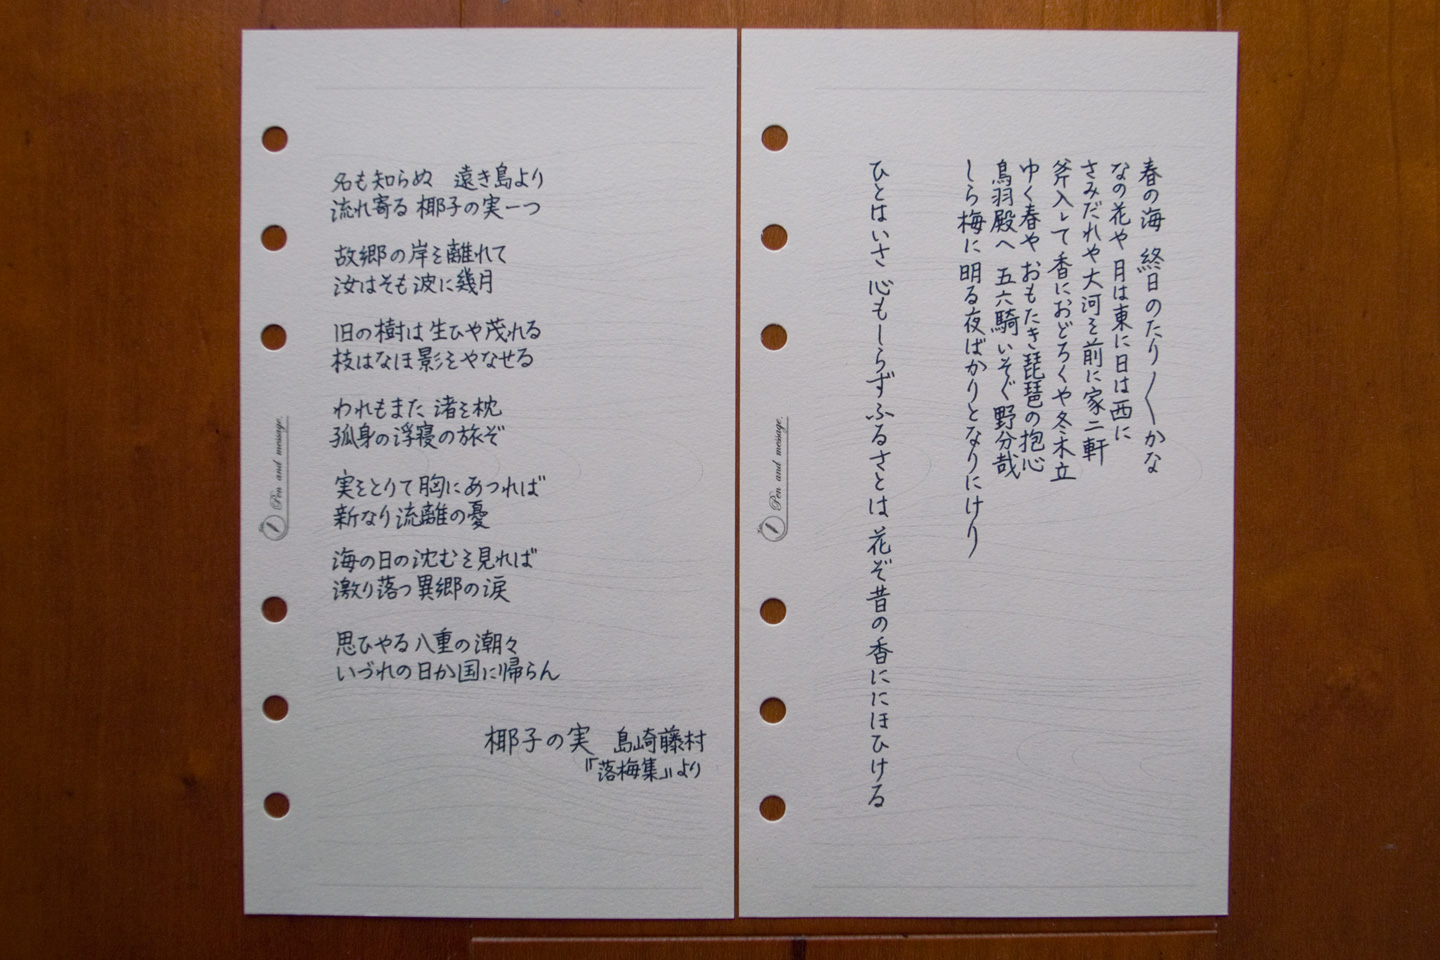 名も知らぬ　遠き島より
流れ寄る 椰子の実一つ
故郷の岸を離れて
汝はそも波に幾月
旧の樹は生ひや茂れる
枝はなほ影をやなせる
われもまた 渚を枕
孤身の浮寝の旅ぞ
実をとりて胸にあつれば
新なり流離の憂
海の日の沈むを見れば
激り落つ異郷の涙
思ひやる八重の潮々
いづれの日か国に帰らん
椰子の実　島崎藤村
『落梅集』より
Pen and message.
春の海 終日のたり〳〵かな
なの花や 月は東に日は西に
さみだれや大河を前に家二軒
斧入して香におどろくや冬木立
ゆく春や おもたき琵琶の抱心
鳥羽殿へ 五六騎いそぐ野分哉
しら梅に 明る夜ばかりとなりにけり
ひとはいさ 心もしらずふるさとは 花ぞ昔の香ににほひける
Pen and message.